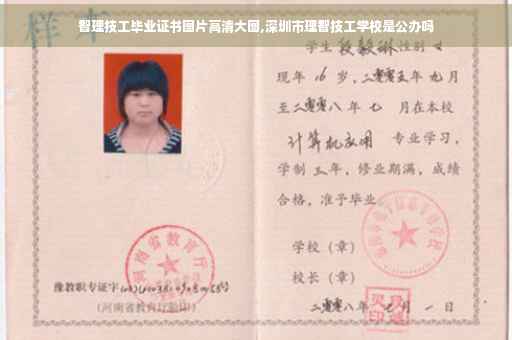 智理技工毕业证书图片高清大图,深圳市理智技工学校是公办吗
样本
学生段毅琳性别女
现年16岁，二零零五年九月
至二零零八年七月在本校
计算机应用 专业学习，
学制三年，修业期满，成绩
合格，准予毕业
学校（章）
校长（章）
二零零八年 月一日
河南省教育厅
豫教职专证字
（河南省教育厅验印）